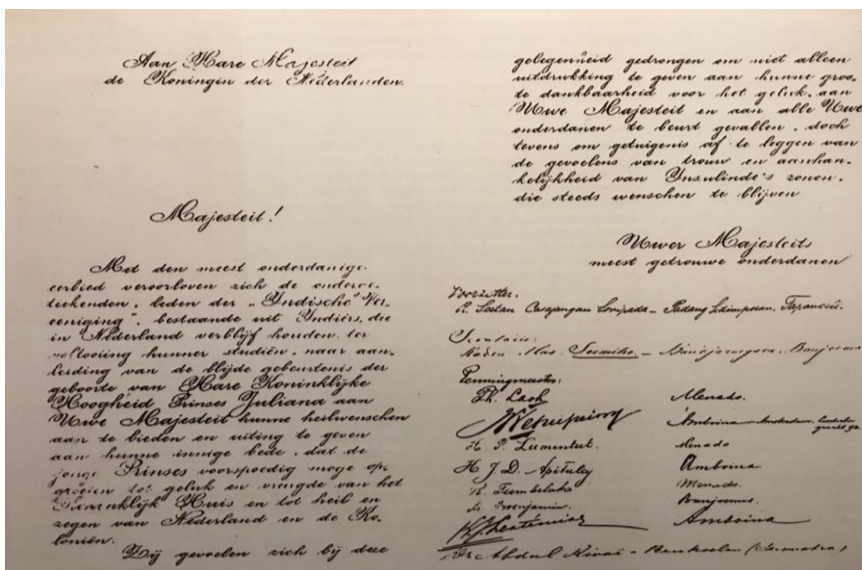 Aan Hare Majesteit
de Koningin der Nederlanden.
Majesteit!
Met den meest onderdanigen
eerbied veroorloven zich de onderge-
teekenden, leden der „Indische Ver-
eeniging", bestaande uit Indiërs, die
in Nederland verblijf houden ter
voltooiing hunner studiën, naar aan-
leiding van de blijde gebeurtenis der
geboorte van Hare Koninklijke
Hoogheid Prinses Juliana aan
Uwe Majesteit hunne heilwenschen
aan te bieden en uiting te geven
aan hunne innige bede, dat de
jonge Prinses voorspoedig moge op-
groeien tot geluk en vreugde van het
Koninklijk Huis en tot heil en
zegen van Nederland en de Ko-
loniën.
Zij gevoelen zich bij deze
gelegenheid gedrongen om niet alleen
uitdrukking te geven aan hunne groo-
te dankbaarheid voor het geluk, aan
Uwe Majesteit en aan alle Uwe
onderdanen te beurt gevallen, doch
tevens om getuigenis af te leggen van
de gevoelens van trouw en aanhan-
kelijkheid van Insulinde's zonen,
die steeds wenschen te blijven
Uwer Majesteits
meest getrouwe onderdanen
Voorzitter:
R. Soetan Casajangan Soripada – Padang Sidimpoean, Tapanoeli.
Secretaris:
Raden Mas Soemitro – Bandjarnegara, Banjoemas
Penningmeester:
Ph. Laoh Menado.
Amboina – Amsterdam
H. P. Lumentut. Menado
H J D. Apituley Amboina
Tumbelaka Menado.
Banjoemas.
Amboina
Dr Abdul Rivai – Benkoelen (Sumatra)